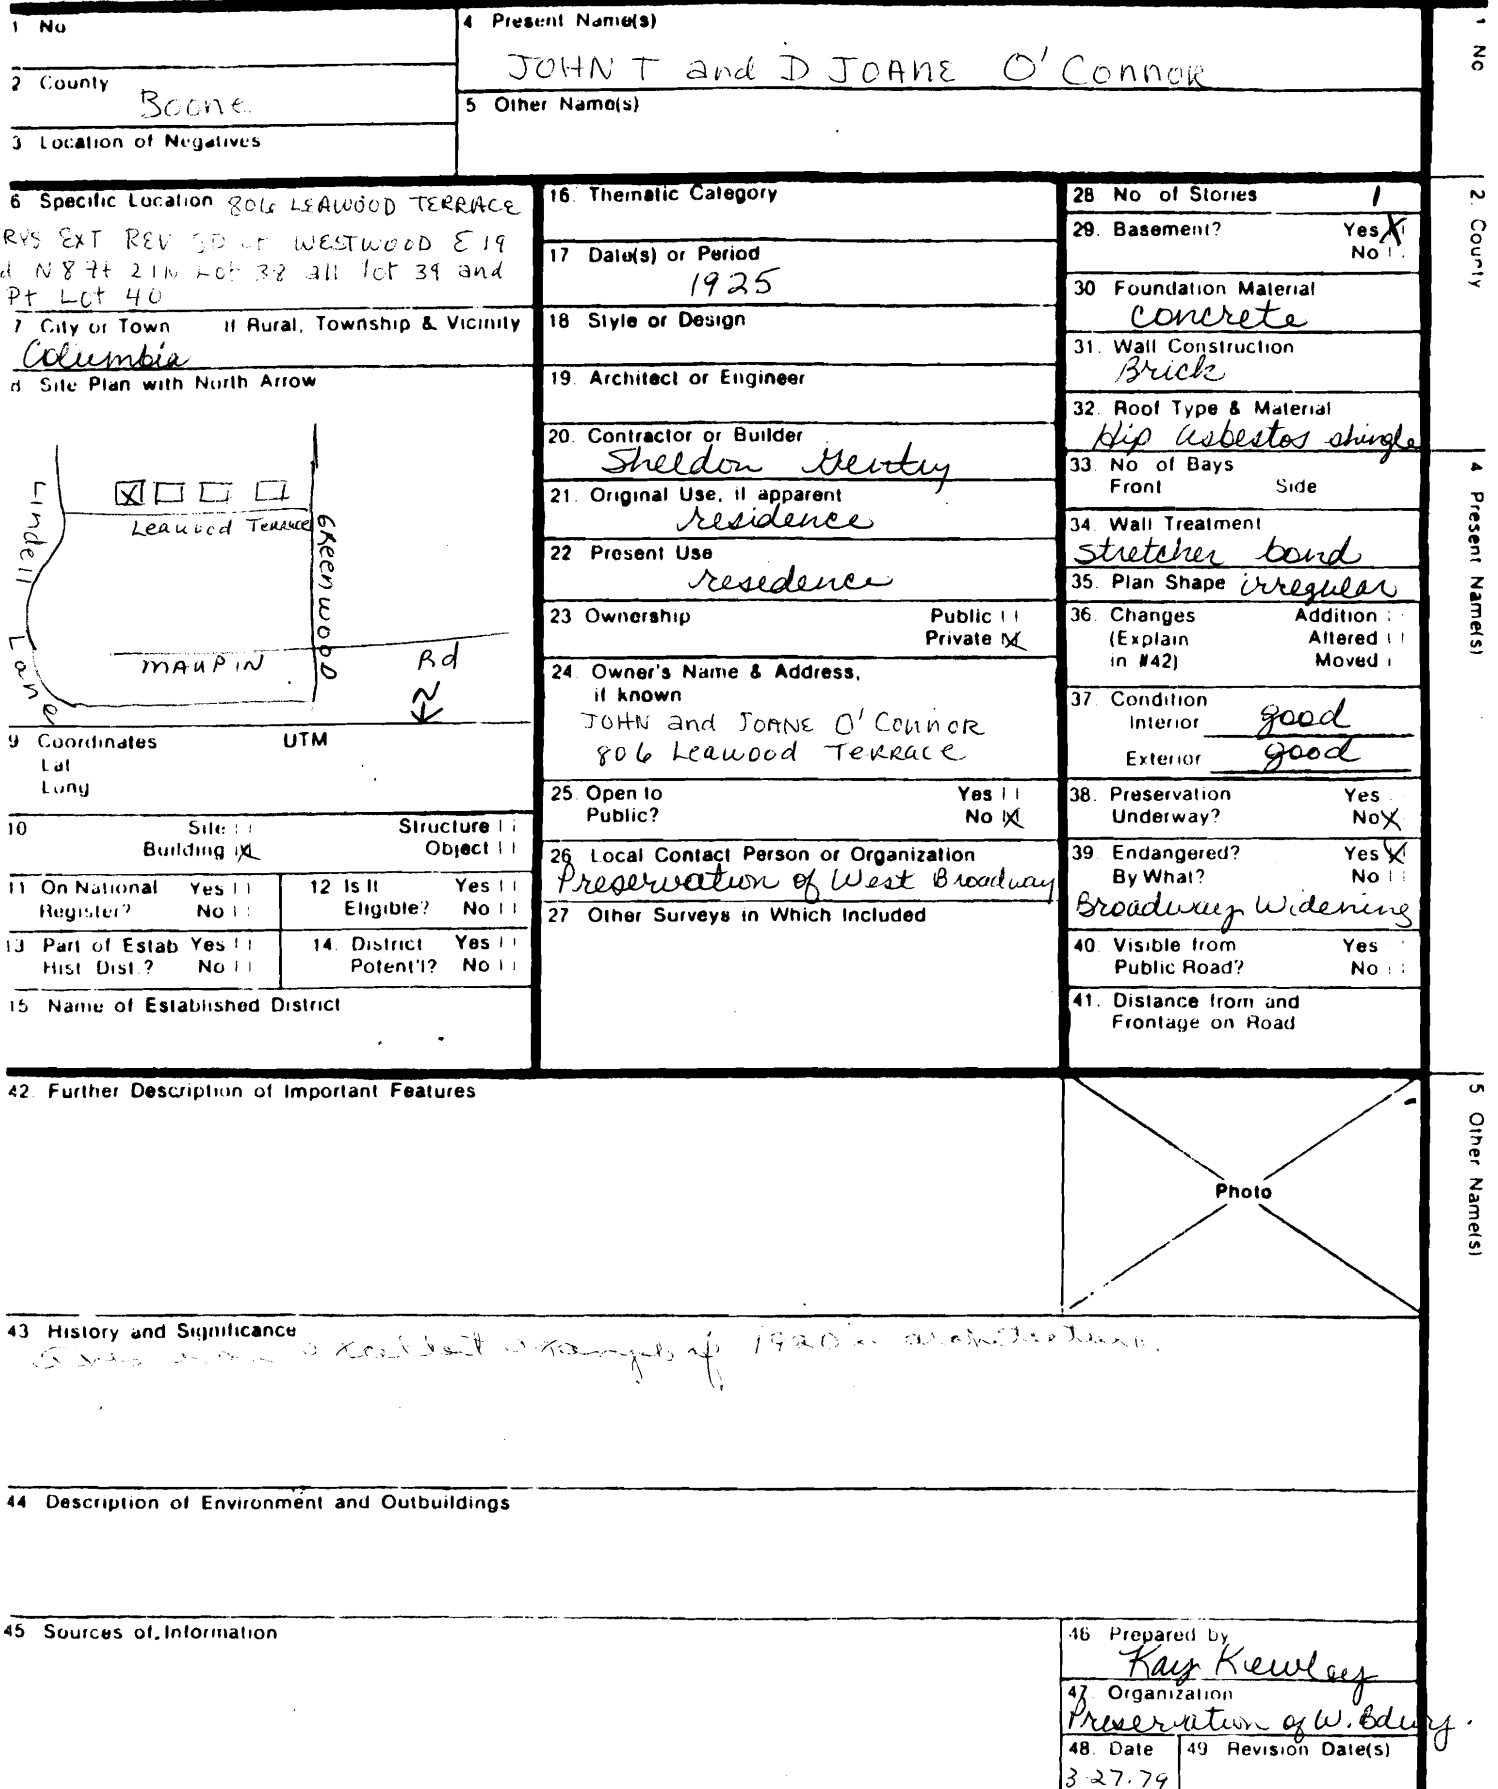 1 No
4 Present Name(s)
JOHN T and D JOANE O'Connor
2 County
Boone
5 Other Name(s)
3 Location of Negatives
6 Specific Location 806 LEAWOOD TERRACE
RYS EXT REV WESTWOOD E 19
N 8 ft 2 IN Lot 38 all lot 39 and
Pt Lot 40
7 City or Town If Rural, Township & Vicinity
Columbia
8 Site Plan with North Arrow
Lindell Lane
Leawood Terrace
GREENWOOD
MAUPIN Rd
N
9 Coordinates UTM
Lat
Long
10 Site
Structure
Building X
Object
11 On National Register? Yes No
12 Is It Eligible? Yes No
13 Part of Estab Hist Dist.? Yes No
14. District Potent'l? Yes No
15 Name of Established District
16. Thematic Category
17 Date(s) or Period
1925
18 Style or Design
19. Architect or Engineer
20. Contractor or Builder
Sheldon Gentry
21. Original Use, if apparent
residence
22 Present Use
residence
23 Ownership Public
Private X
24. Owner's Name & Address,
if known
JOHN and JOANE O'Connor
806 Leawood Terrace
25. Open to Yes
Public? No X
26. Local Contact Person or Organization
Preservation of West Broadway
27 Other Surveys in Which Included
28 No of Stories 1
29. Basement? Yes X
No
30 Foundation Material
concrete
31. Wall Construction
Brick
32. Roof Type & Material
Hip asbestos shingle
33. No of Bays
Front Side
34. Wall Treatment
stretcher bond
35. Plan Shape irregular
36. Changes Addition
(Explain Altered
in #42) Moved
37. Condition
Interior good
Exterior good
38. Preservation Yes
Underway? No X
39. Endangered? Yes X
By What? No
Broadway Widening
40. Visible from Yes
Public Road? No
41. Distance from and
Frontage on Road
42. Further Description of Important Features
Photo
43 History and Significance
excellent example of 1920's architecture.
44 Description of Environment and Outbuildings
45 Sources of Information
46 Prepared by
Kay Kewley
47. Organization
Preservation of W. Bdwy.
48. Date
3-27-79
49 Revision Date(s)
1 No
2. County
4 Present Name(s)
5 Other Name(s)